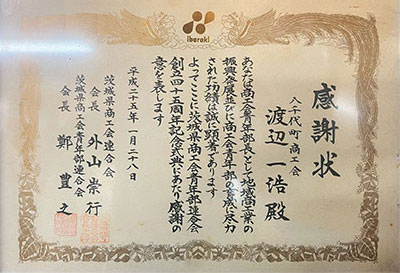 ibaraki
感謝状
八千代町商工会
渡辺一浩殿
あなたは商工会青年部長として地域商工業の
振興発展並びに商工会青年部の育成に尽力
された功績は誠に顕著であります
よってここに茨城県商工会青年部連合会
創立四十五周年記念式典にあたり感謝の
意を表します
平成二十五年一月二十八日
茨城県商工会連合会
会長 外山崇行
茨城県商工会青年部連合会
会長 鄭豊之